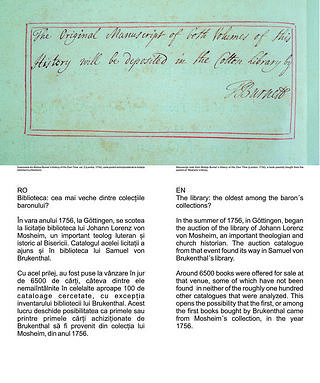 The Original Manuscript of both Volumes of this
History will be deposited in the Cotton Library by
TBurnett
RO
Biblioteca: cea mai veche dintre colecțiile
baronului?
În vara anului 1756, la Göttingen, se scotea
la licitație biblioteca lui Johann Lorenz von
Mosheim, un important teolog luteran și
istoric al Bisericii. Catalogul acelei licitații a
ajuns și în biblioteca lui Samuel von
Brukenthal.
Cu acel prilej, au fost puse la vânzare în jur
de 6500 de cărți, câteva dintre ele
nemaiîntâlnite în celelalte aproape 100 de
cataloage cercetate, cu excepția
inventarului bibliotecii lui Brukenthal. Acest
lucru deschide posibilitatea ca primele sau
printre primele cărți achiziționate de
Brukenthal să fi provenit din colecția lui
Mosheim, din anul 1756.
EN
The library: the oldest among the baron´s
collections?
In the summer of 1756, in Göttingen, began
the auction of the library of Johann Lorenz
von Mosheim, an important theologian and
church historian. The auction catalogue
from that event found its way in Samuel von
Brukenthal´s library.
Around 6500 books were offered for sale at
that venue, some of which have not been
found in neither of the roughly one hundred
other catalogues that were analyzed. This
opens the possibility that the first, or among
the first books bought by Brukenthal came
from Mosheim´s collection, in the year
1756.